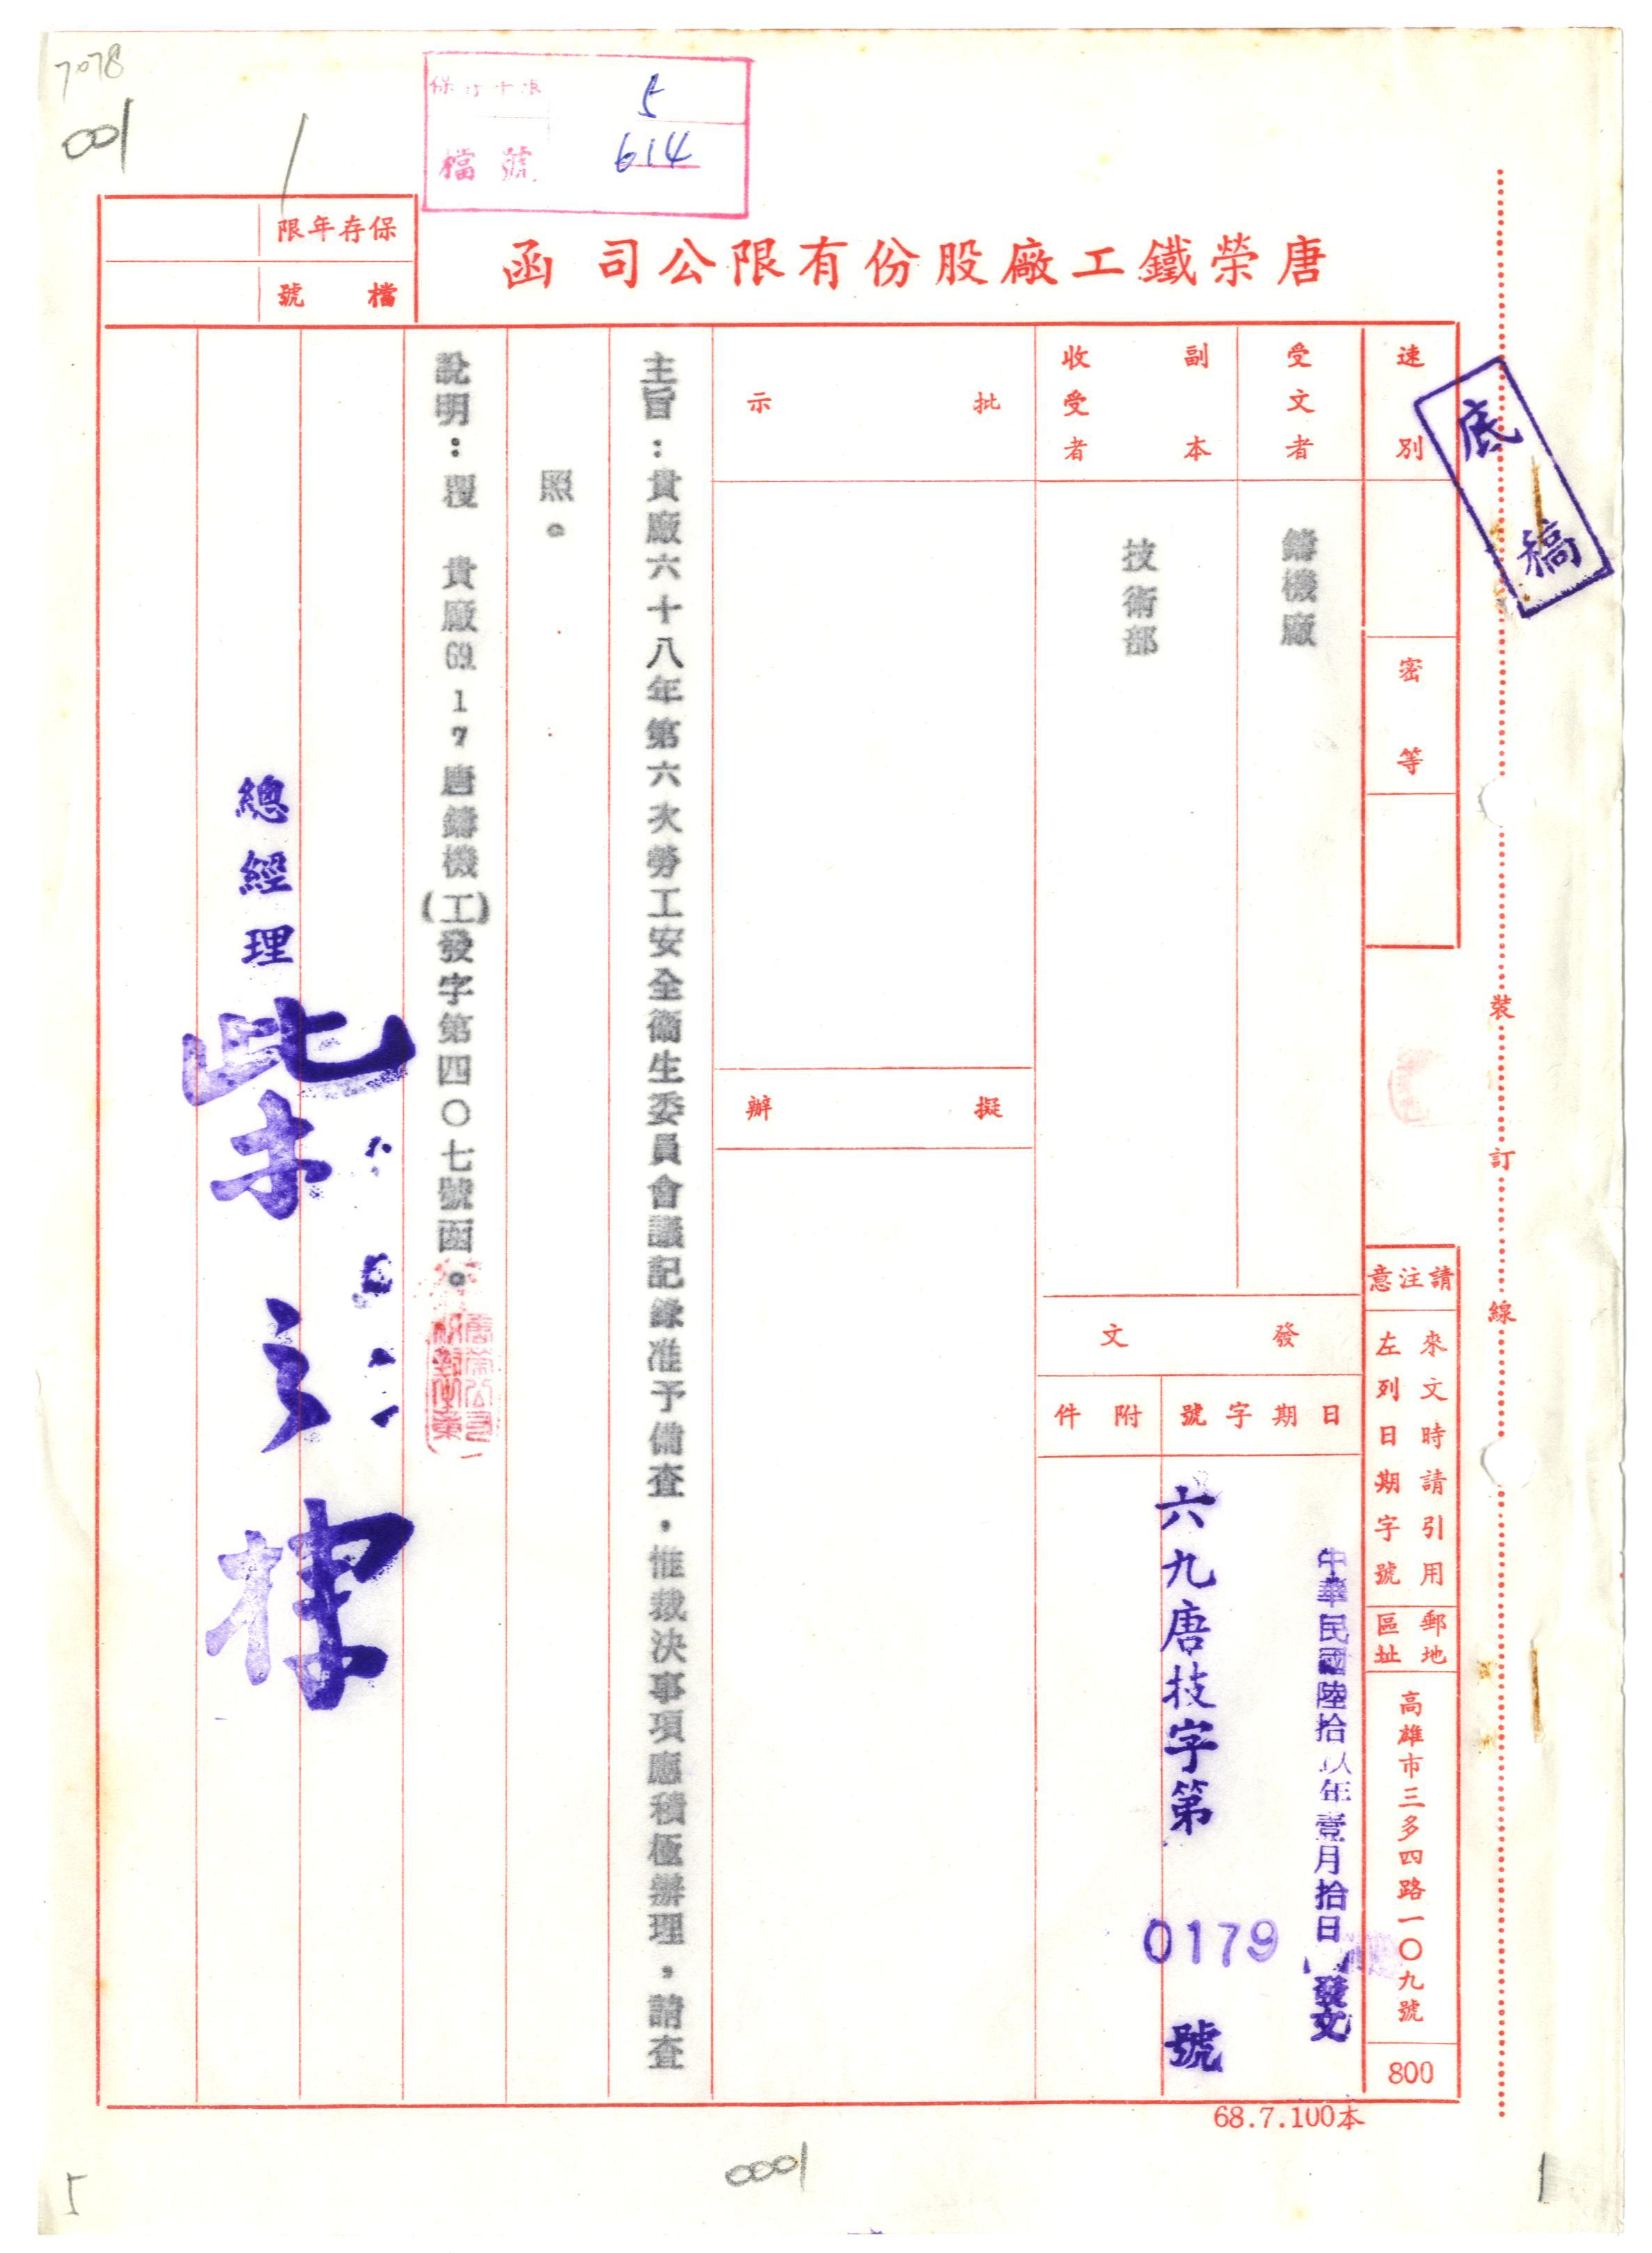 7078
001
1
5
檔號 614
唐榮鐵工廠股份有限公司 函
保存年限
檔號
底稿
速別
密等
受文者
鑄機廠
副本收受者
技術部
批示
擬辦
發文
日期字號
附件
中華民國陸拾玖年壹月拾日
發文
六九唐技字第 0179 號
請注意
來文時請引用左列日期字號
郵地區址
高雄市三多四路一〇九號
800
裝訂線
主旨：貴廠六十八年第六次勞工安全衞生委員會議記錄准予備查，惟裁決事項應積極辦理，請查
照。
說明：覆 貴廠69.1.7唐鑄機(工)發字第四〇七號函。
總經理
68.7.100本
5
0001
1